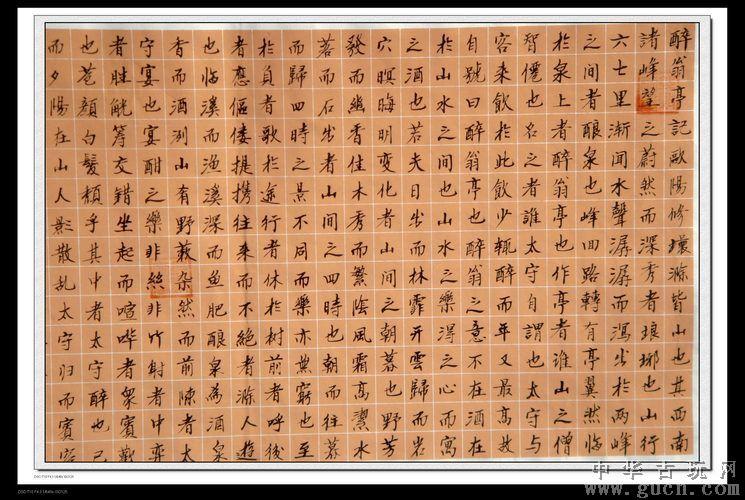 醉翁亭記歐陽修環滁皆山也其西南
諸峰望之蔚然而深秀者琅琊也山行
六七里漸聞水聲潺潺而瀉出於兩峰
之間者釀泉也峰回路轉有亭翼然臨
於泉上者醉翁亭也作亭者誰山之僧
智僊也名之者誰太守自謂也太守與
客來飲於此飲少輒醉而年又最高故
自號曰醉翁亭也醉翁之意不在酒在
於山水之間也山水之樂得之心而寓
之酒也若夫日出而林霏開雲歸而岩
穴暝晦明變化者山間之朝暮也野芳
發而幽香佳木秀而繁陰風霜高潔水
落而石出者山間之四時也朝而往暮
而歸四時之景不同而樂亦無窮也至
於負者歌於途行者休於樹前者呼後
者應傴僂提攜往來而不絕者滁人遊
也臨溪而漁溪深而魚肥釀泉為酒泉
香而酒洌山有野蔌杂然而前陳者太
守宴也宴酣之樂非絲非竹射者中弈
者胜觥筹交错坐起而喧哗者衆賓歡
也苍顏白髮頹乎其中者太守醉也已
而夕陽在山人影散乱太守归而賓客
中华古玩网
www.gucn.com